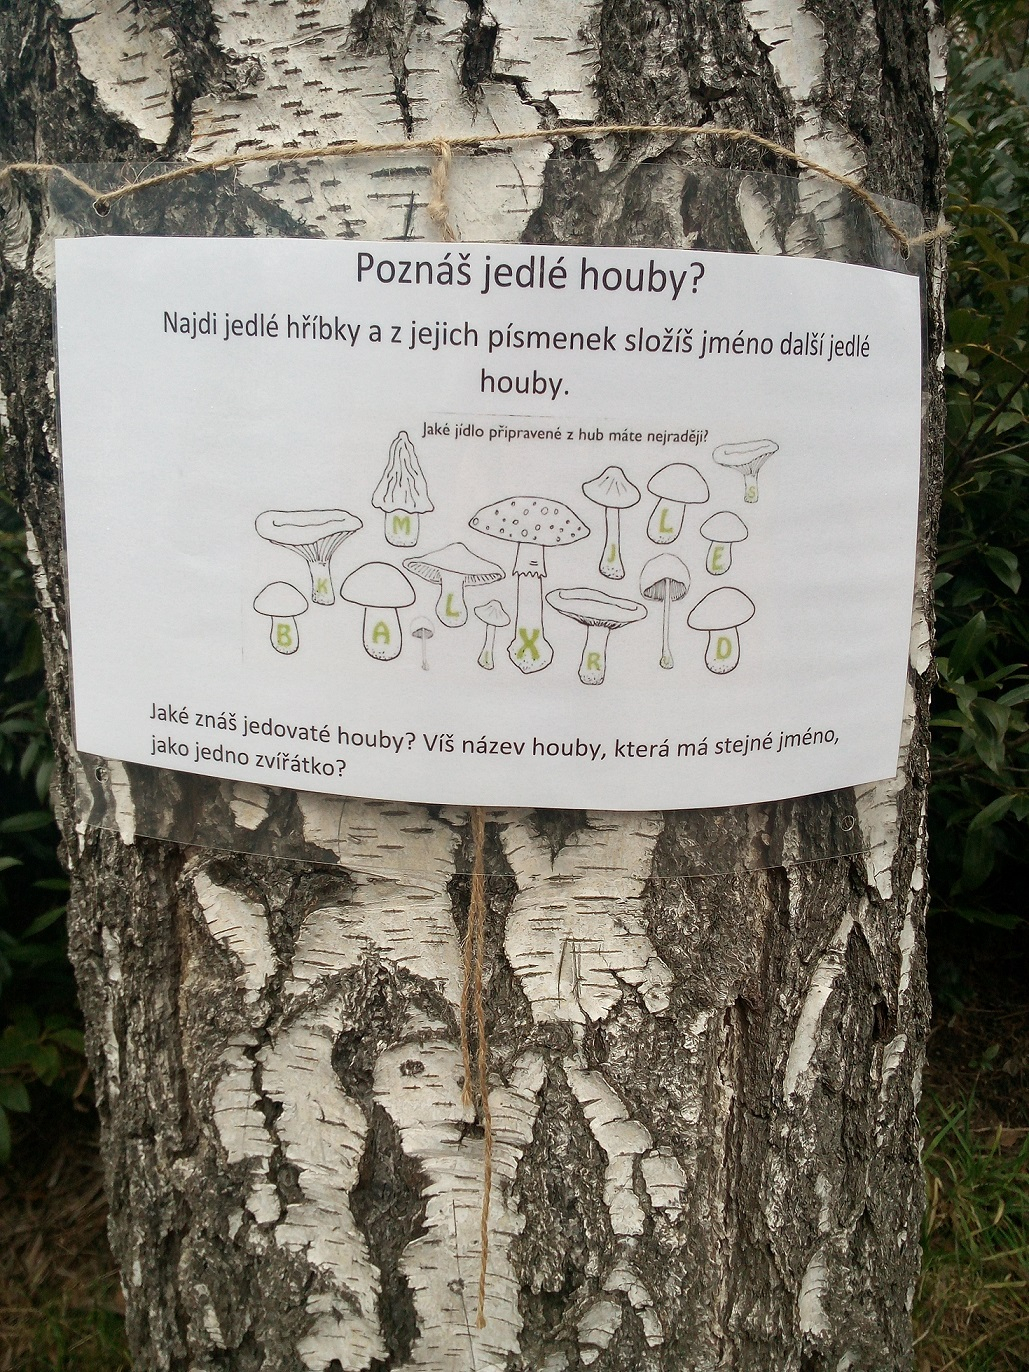 Poznáš jedlé houby?
Najdi jedlé hříbky a z jejich písmenek složíš jméno další jedlé
houby.
Jaké jídlo připravené z hub máte nejraději?
S
M
L
J
E
K
L
B
A
X
R
D
Jaké znáš jedovaté houby? Víš název houby, která má stejné jméno,
jako jedno zvířátko?